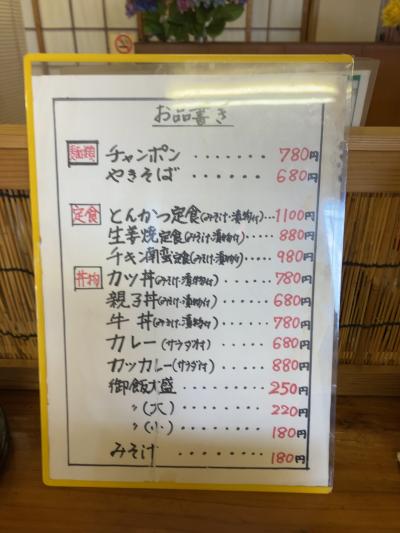 お品書き
麺類 チャンポン ・・・・・・・ 780円
やきそば ・・・・・・・ 680円
定食 とんかつ定食(みそ汁・漬物付)・・・1100円
生姜焼定食(みそ汁・漬物付)・・・・・ 880円
チキン南蛮定食(みそ汁・漬物付)・・・ 980円
丼物 カツ丼(みそ汁・漬物付)・・・・・・ 780円
親子丼(みそ汁・漬物付)・・・・・・ 680円
牛丼(みそ汁・漬物付)・・・・・・ 780円
カレー(サラダ付)・・・・・・ 680円
カツカレー(サラダ付)・・・・・・ 880円
御飯大盛 ・・・・・・・・ 250円
〃(大) ・・・・・・・・ 220円
〃(小) ・・・・・・・・ 180円
みそ汁 ・・・・・・・・ 180円